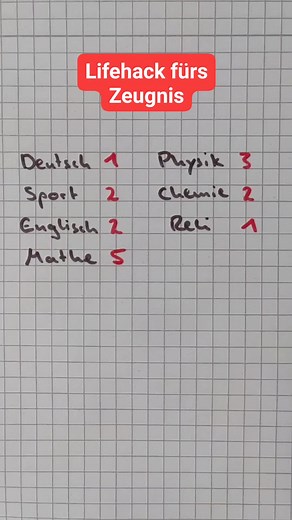 Lifehack fürs
Zeugnis
Deutsch 1 Physik 3
Sport 2 Chemie 2
Englisch 2 Reli 1
Mathe 5